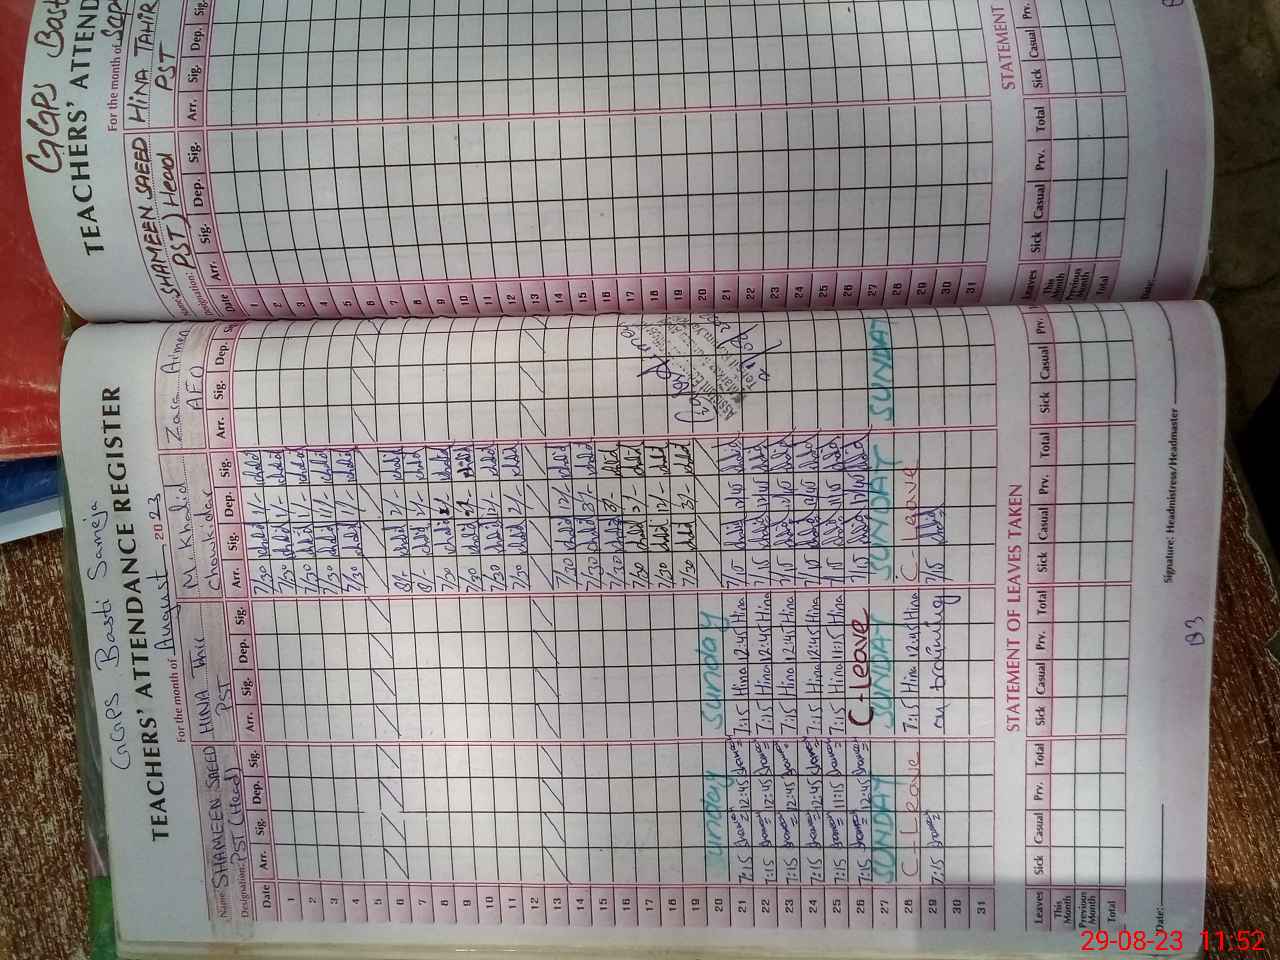 GGPS Basti Sameja
TEACHERS' ATTENDANCE REGISTER
For the month of August 2023
Name: SHAMEEN SAEED HINA Tahir M. Khalid
Designation: PST (Head) PST Chowkidar AEO
Date Arr. Sig. Dep. Sig. Arr. Sig. Dep. Sig. Arr. Sig. Dep. Sig. Arr. Sig. Dep.
1 7/30 1/-
2 7/30 1/-
3 7/30 1/-
4 7/30 1/-
5 7/30 1/-
6
7 8/- 2/-
8 8/- 2/-
9 7/30
10 7/30
11 7/30 2/-
12 7/30 2/-
13
14 7/30 12/-
15 7/30 3/-
16 7/30
17 7/30 2/-
18 7/30 12/-
19 7/30 3/-
20 Sunday Sunday
21 7:15 12:45 7:15 Hina 12:45 Hina 7/15 12/45
22 7:15 12:45 7:15 Hina 12:45 Hina 7/15 12/45
23 7:15 12:45 7:15 Hina 12:45 Hina 7/15 12/45
24 7:15 12:45 7:15 Hina 12:45 Hina 7/15 12/45
25 7:15 11:15 7:15 Hina 11:15 Hina 7/15 11/15
26 7:15 12:45 C-leave 7/15 12/45
27 SUNDAY SUNDAY SUNDAY SUNDAY
28 C-Leave 7:15 Hina 12:45 Hina C-Leave
29 7:15 on training 7/15
30
31
STATEMENT OF LEAVES TAKEN
Leaves Sick Casual Prv. Total Sick Casual Prv. Total Sick Casual Prv. Total Sick Casual Prv.
This Month
Previous Month
Total
Date: Signature: Headmistress/Headmaster
B3
GGPS Bast
TEACHERS' ATTEND
For the month of Sep
SHAMEEN SAEED HINA TAHIR
Designation: PST) Head PST
Date Arr. Sig. Dep. Sig. Arr. Sig. Dep. Sig.
1
2
3
4
5
6
7
8
9
10
11
12
13
14
15
16
17
18
19
20
21
22
23
24
25
26
27
28
29
30
31
STATEMENT
Leaves Sick Casual Prv. Total Sick Casual Prv.
This Month
Previous Month
Total
29-08-23 11:52